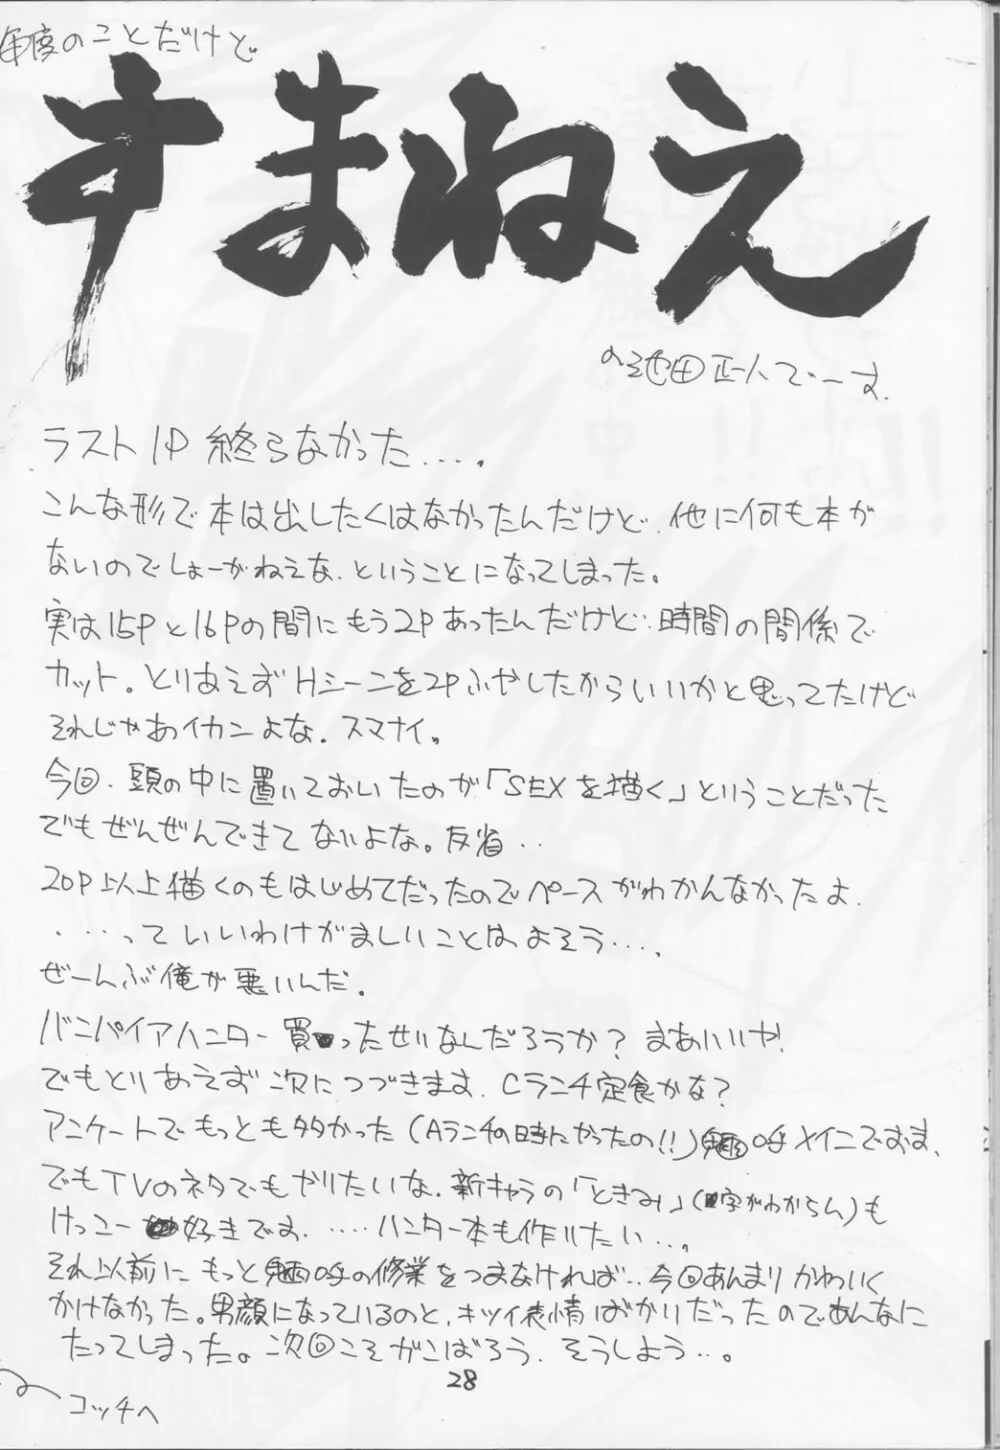 毎度のことだけど
すまねえ
の池田正人でーす.
ラスト1P 終らなかった....
こんな形で本は出したくはなかったんだけど、他に何も本が
ないのでしょーがねえな、ということになってしまった。
実は15Pと16Pの間にもう2Pあったんだけど、時間の関係で
カット。とりあえずHシーンを2Pふやしたからいいかと思ってたけど
それじゃあイカンよな. スマナイ。
今回、頭の中に置いておいたのが「SEXを描く」ということだった
でもぜんぜんできてないよな。反省・・
20P以上描くのもはじめてだったのでペースがわかんなかったよ.
・・・・っていいわけがましいことはよそう....
ぜーんぶ俺が悪いんだ.
バンパイアハンター買ったせいなんだろうか? まあいいや!
でもとりあえず次につづきます. Cランチ定食かな?
アンケートでもっとも多かった(Aランチの時にやったの!!)魎呼メインでおます.
でもTVのネタでもやりたいな. 新キャラの「ときみ」(字がわからん)も
けっこー好きです. ....ハンター本も作りたい...
それ以前にもっと魎呼の修業をつまなければ.. 今回あんまりかわいく
かけなかった。男顔になっているのと、キツイ表情ばかりだったのであんなに
なってしまった。次回こそがんばろう. そうしよう...。
28
コッチへ